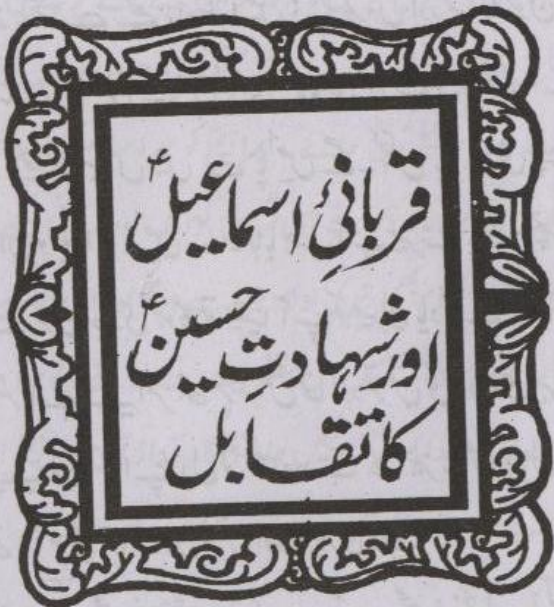 قربانیِٔ اسماعیلؑ
اور شہادتِ حسینؑ
کا تقابل